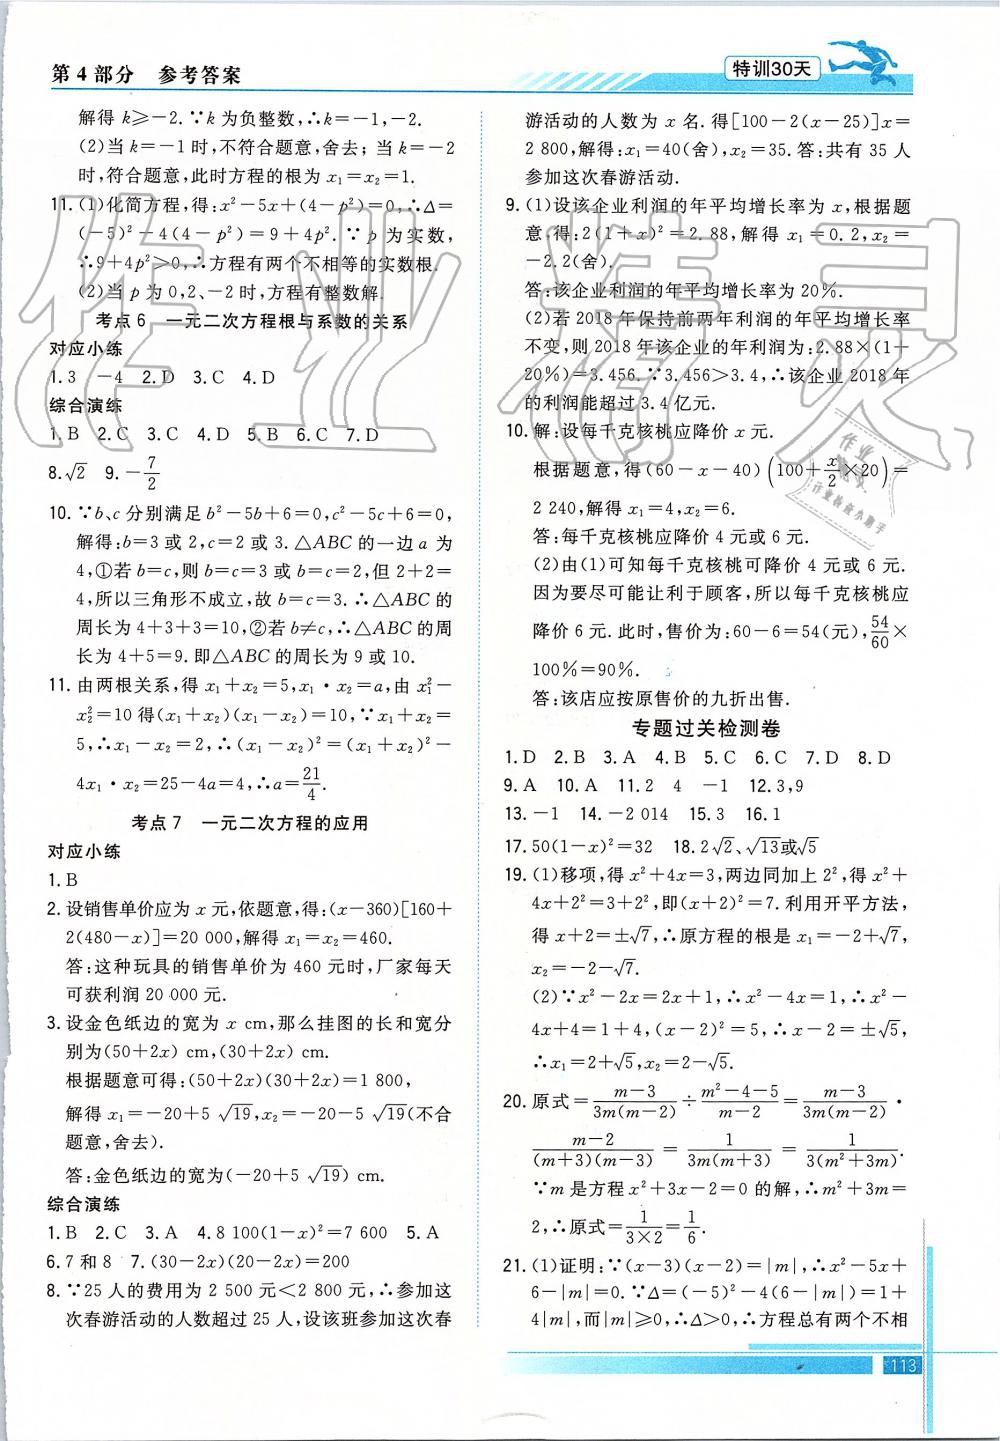 第4部分 参考答案
特训30天
解得 k≥-2.∵k 为负整数,∴k=-1,-2.
(2)当 k=-1 时,不符合题意,舍去;当 k=-2
时,符合题意,此时方程的根为 x₁=x₂=1.
11.(1)化简方程,得:x²-5x+(4-p²)=0,∴Δ=
(-5)²-4(4-p²)=9+4p².∵p 为实数,
∴9+4p²>0,∴方程有两个不相等的实数根.
(2)当 p 为 0,2、-2 时,方程有整数解.
考点6 一元二次方程根与系数的关系
对应小练
1.3 -4 2.D 3.C 4.D
综合演练
1.B 2.C 3.C 4.D 5.B 6.C 7.D
8.√2 9.-7/2
10.∵b、c 分别满足 b²-5b+6=0,c²-5c+6=0,
解得:b=3 或 2,c=2 或 3.△ABC 的一边 a 为
4,①若 b=c,则 b=c=3 或 b=c=2,但 2+2=
4,所以三角形不成立,故 b=c=3.∴△ABC 的
周长为 4+3+3=10,②若 b≠c,∴△ABC 的周
长为 4+5=9.即△ABC 的周长为 9 或 10.
11.由两根关系,得 x₁+x₂=5,x₁·x₂=a,由 x₁²-
x₂²=10 得(x₁+x₂)(x₁-x₂)=10,∵x₁+x₂=
5,∴x₁-x₂=2,∴(x₁-x₂)²=(x₁+x₂)²-
4x₁·x₂=25-4a=4,∴a=21/4.
考点7 一元二次方程的应用
对应小练
1.B
2.设销售单价应为 x 元,依题意,得:(x-360)[160+
2(480-x)]=20 000,解得 x₁=x₂=460.
答:这种玩具的销售单价为 460 元时,厂家每天
可获利润 20 000 元.
3.设金色纸边的宽为 x cm,那么挂图的长和宽分
别为(50+2x) cm,(30+2x) cm.
根据题意可得:(50+2x)(30+2x)=1 800,
解得 x₁=-20+5 √19,x₂=-20-5 √19(不合
题意,舍去).
答:金色纸边的宽为(-20+5 √19) cm.
综合演练
1.B 2.C 3.A 4.8 100(1-x)²=7 600 5.A
6.7 和 8 7.(30-2x)(20-2x)=200
8.∵25 人的费用为 2 500 元<2 800 元,∴参加这
次春游活动的人数超过 25 人,设该班参加这次春
游活动的人数为 x 名.得[100-2(x-25)]x=
2 800,解得:x₁=40(舍),x₂=35.答:共有 35 人
参加这次春游活动.
9.(1)设该企业利润的年平均增长率为 x,根据题
意,得:2(1+x)²=2.88,解得 x₁=0.2,x₂=
-2.2(舍).
答:该企业利润的年平均增长率为 20%.
(2)若 2018 年保持前两年利润的年平均增长率
不变,则 2018 年该企业的年利润为:2.88×(1+
20%)=3.456.∵3.456>3.4,∴该企业 2018 年
的利润能超过 3.4 亿元.
10.解:设每千克核桃应降价 x 元.
根据题意,得(60-x-40)(100+x/2×20)=
2 240,解得 x₁=4,x₂=6.
答:每千克核桃应降价 4 元或 6 元.
(2)由(1)可知每千克核桃可降价 4 元或 6 元.
因为要尽可能让利于顾客,所以每千克核桃应
降价 6 元.此时,售价为:60-6=54(元),54/60×
100%=90%.
答:该店应按原售价的九折出售.
专题过关检测卷
1.D 2.B 3.A 4.B 5.C 6.C 7.D 8.D
9.A 10.A 11.2 4 -1 12.3,9
13.-1 14.-2 014 15.3 16.1
17.50(1-x)²=32 18.2√2、√13或√5
19.(1)移项,得 x²+4x=3,两边同加上 2²,得 x²+
4x+2²=3+2²,即(x+2)²=7.利用开平方法,
得 x+2=±√7,∴原方程的根是 x₁=-2+√7,
x₂=-2-√7.
(2)∵x²-2x=2x+1,∴x²-4x=1,∴x²-
4x+4=1+4,(x-2)²=5,∴x-2=±√5,
∴x₁=2+√5,x₂=2-√5.
20.原式=(m-3)/(3m(m-2))÷(m²-4-5)/(m-2)=(m-3)/(3m(m-2))·
(m-2)/((m+3)(m-3))=1/(3m(m+3))=1/(3(m²+3m)).
∵m 是方程 x²+3x-2=0 的解,∴m²+3m=
2,∴原式=1/(3×2)=1/6.
21.(1)证明:∵(x-3)(x-2)=|m|,∴x²-5x+
6-|m|=0.∵Δ=(-5)²-4(6-|m|)=1+
4|m|,而|m|≥0,∴Δ>0,∴方程总有两个不相
113
作业精灵